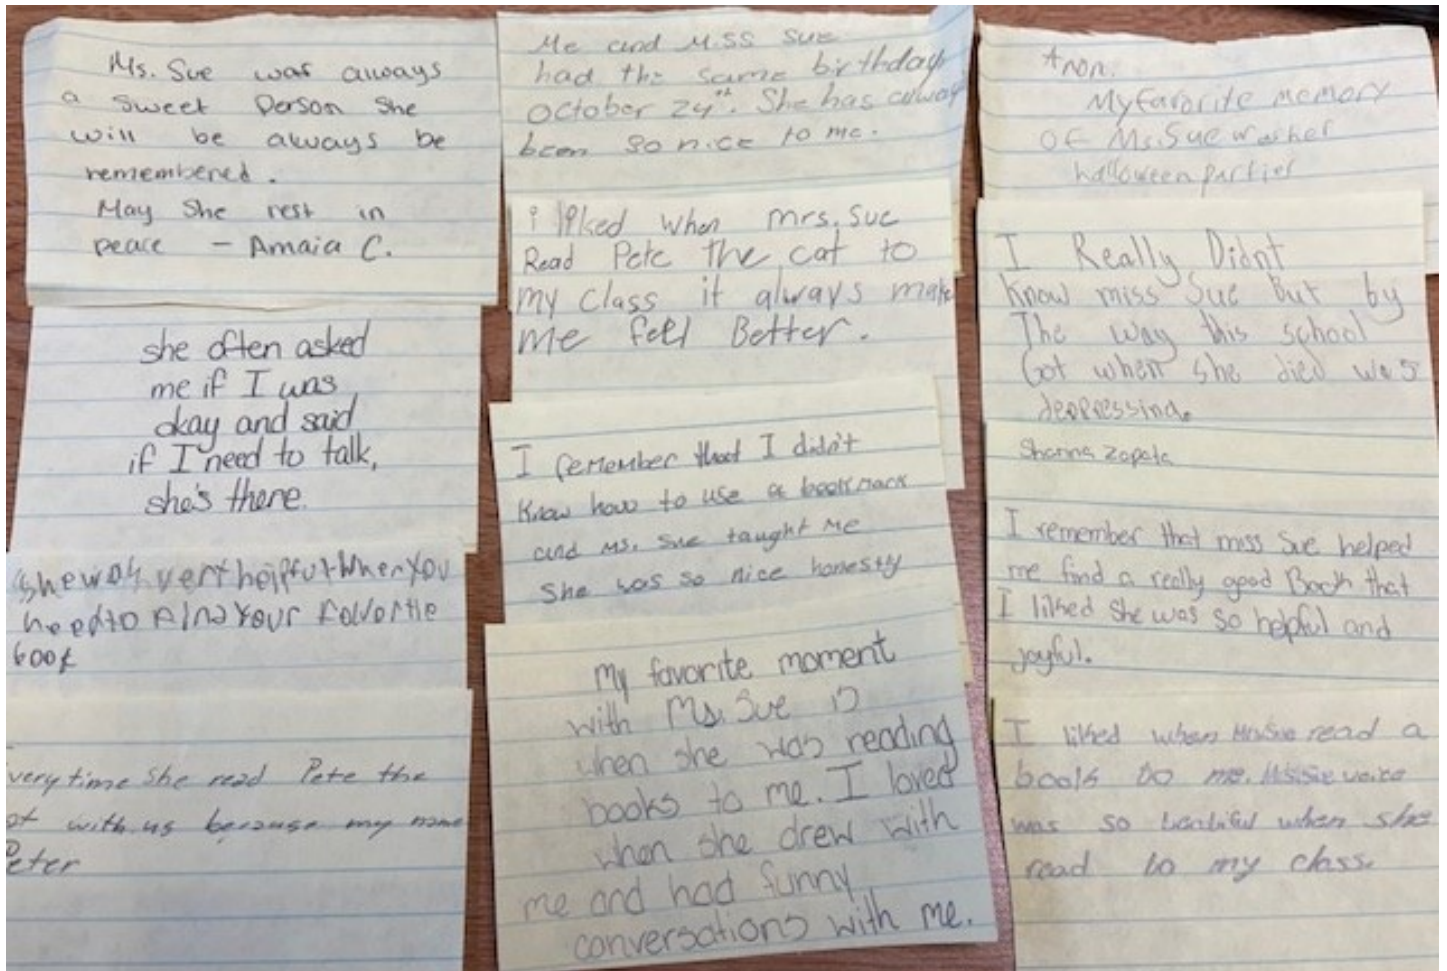 Ms. Sue was always
a sweet person she
will be always be
remembered.
May she rest in
peace - Amaia C.
she often asked
me if I was
okay and said
if I need to talk,
she's there.
she was very helpful when you
need to find your favortie
book
very time she read Pete the
at with us because my name
Peter
Me and Miss Sue
had the same birthday
october 24th. She has alway
been so nice to me.
i liked when mrs. Sue
Read Pete the cat to
my class it always make
me fell Better.
I remember that I didn't
know how to use a bookmark
and Ms. Sue taught me
She was so nice honestly
My favorite moment
with Ms. Sue is
when she was reading
books to me. I loved
when she drew with
me and had funny
conversations with me.
Anon.
My favorite memory
of Ms. Sue was her
halloween parties
I Really Didnt
know miss Sue But by
The way this school
Got when she died was
deppressing.
Sharina Zapata
I remember that miss Sue helped
me find a really good Book that
I liked she was so helpful and
joyful.
I liked when Ms Sue read a
book to me. Ms Sue voice
was so beatiful when she
read to my class.